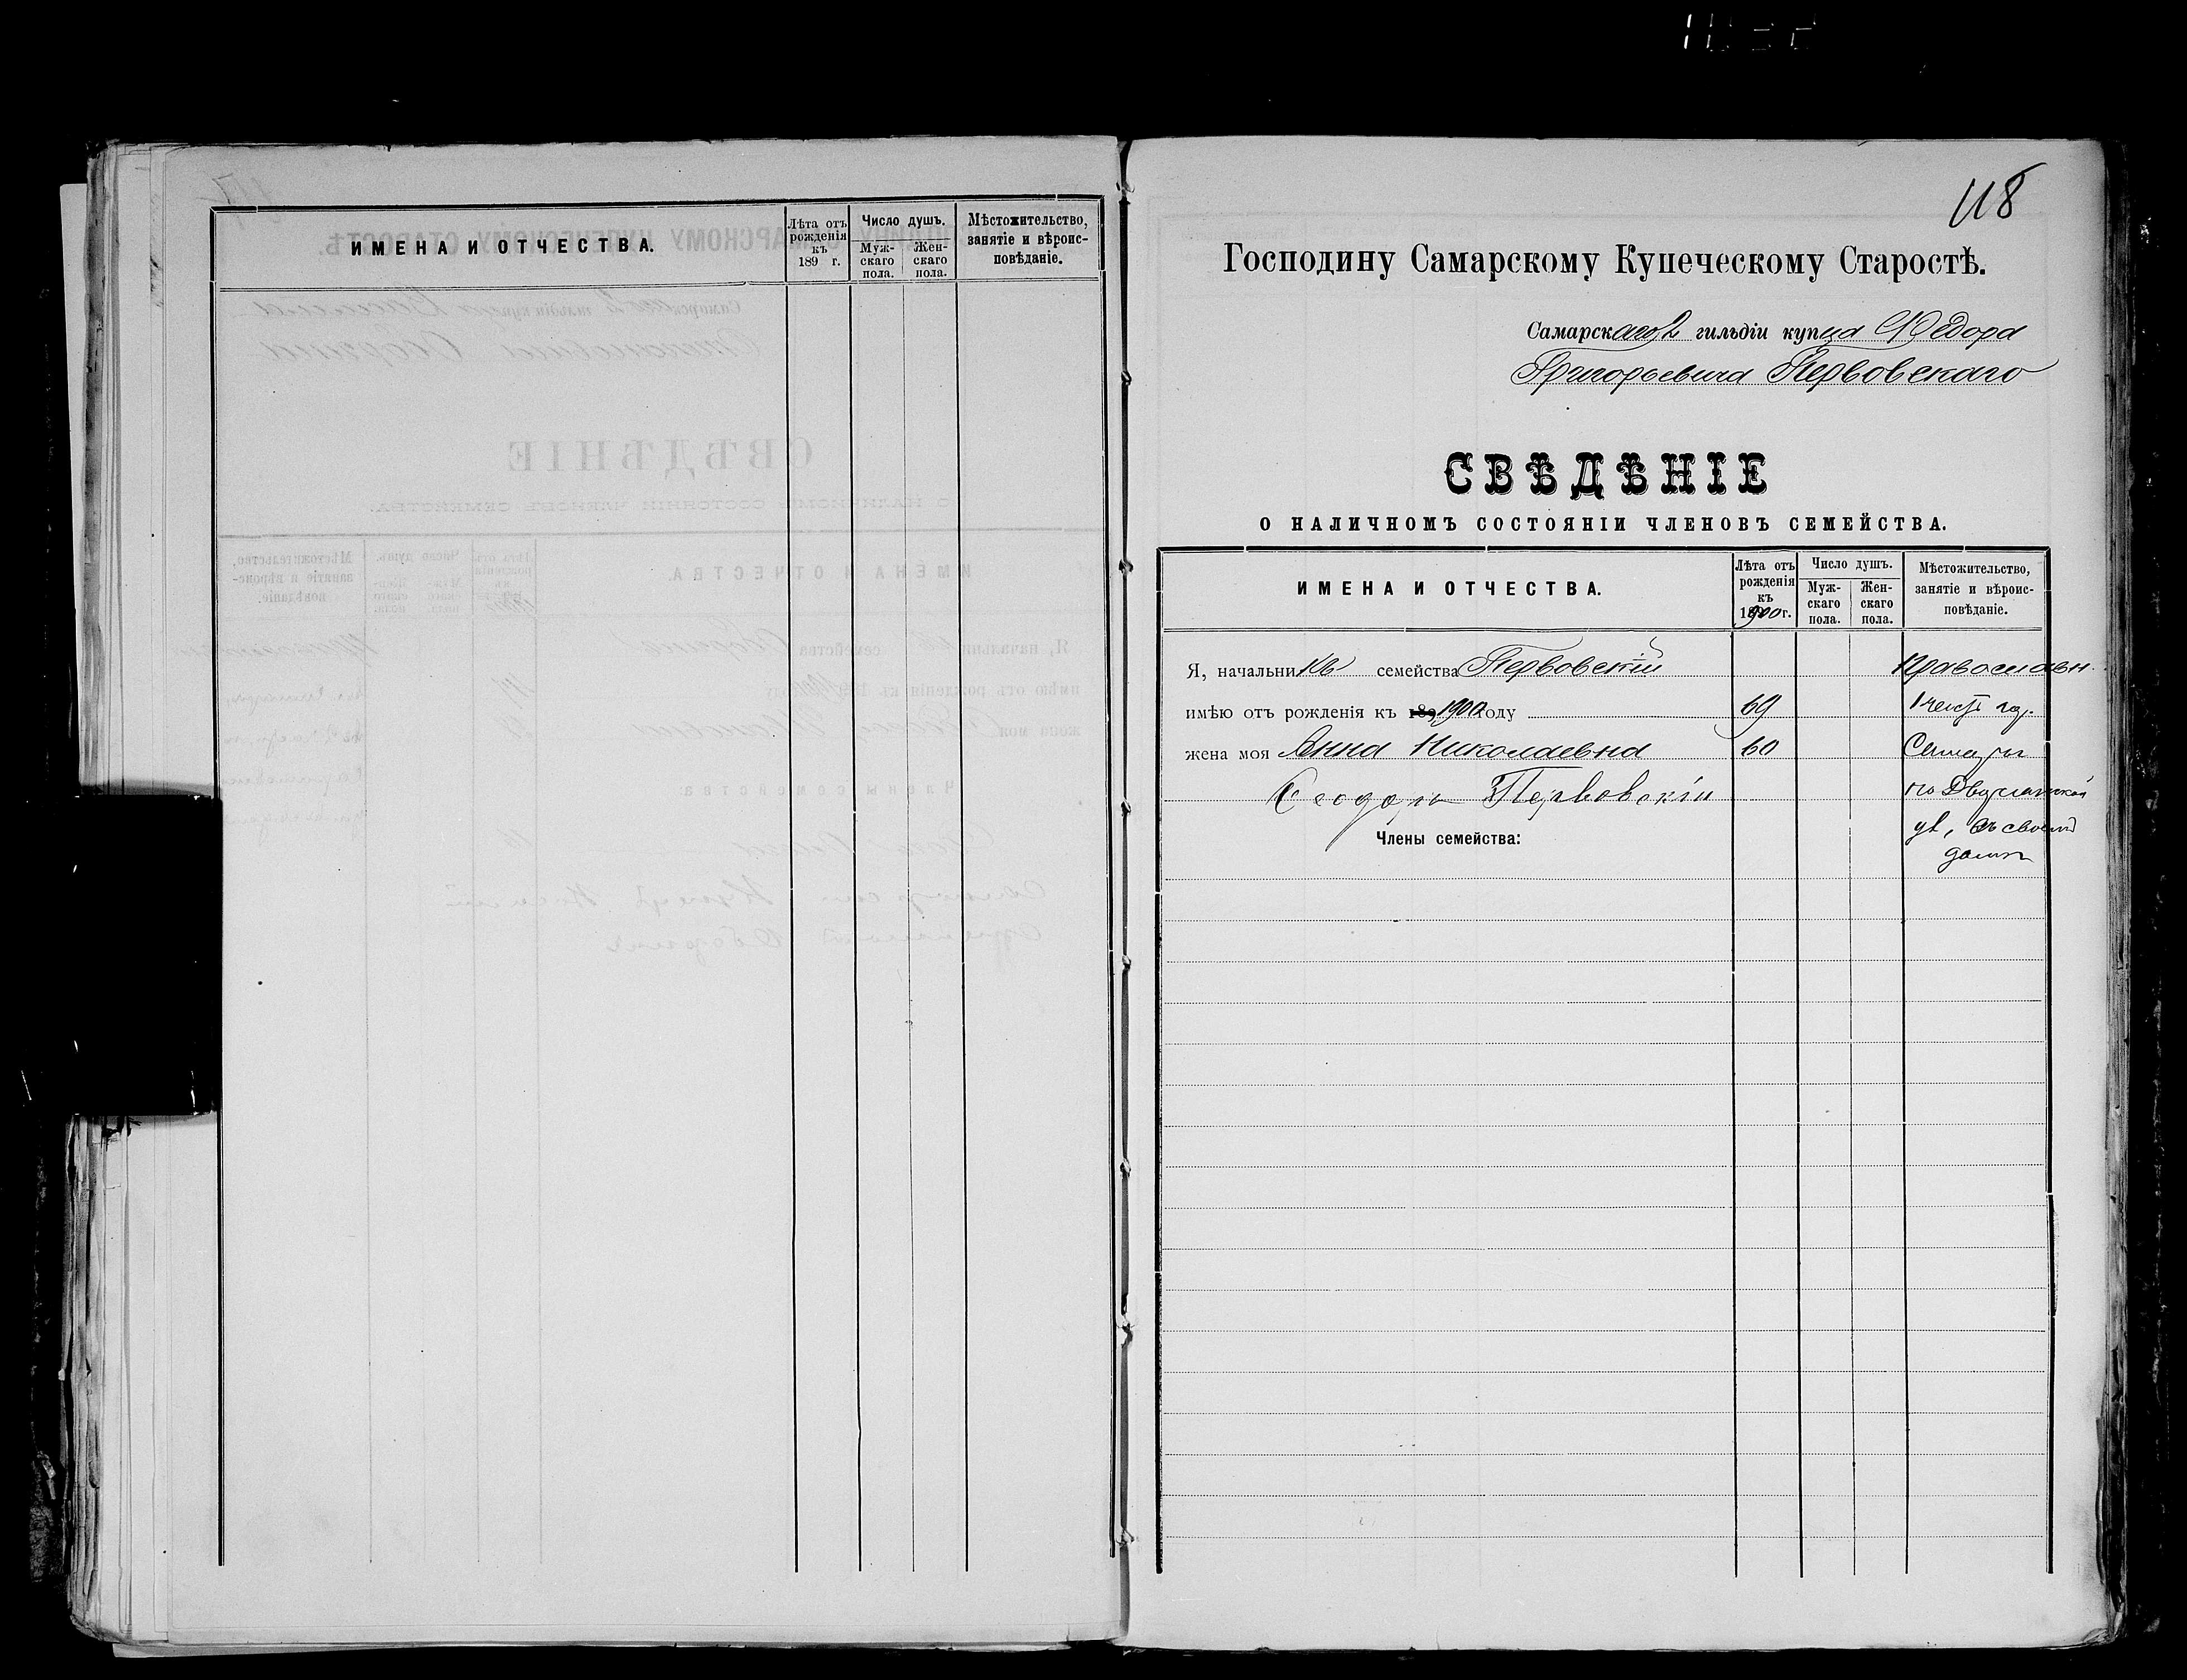 ИМЕНА И ОТЧЕСТВА.
Лѣта отъ рожденія къ 189 г.
Число душъ.
Муж- скаго пола.
Жен- скаго пола.
Мѣстожительство, занятіе и вѣроис- повѣданіе.
118
Господину Самарскому Купеческому Старостѣ.
Самарскаго 2 гильдіи купца Федора
Григорьевича Первовскаго
СВѢДѢНІЕ
О НАЛИЧНОМЪ СОСТОЯНІИ ЧЛЕНОВЪ СЕМЕЙСТВА.
ИМЕНА И ОТЧЕСТВА.
Лѣта отъ рожденія къ 1900 г.
Число душъ.
Муж- скаго пола.
Жен- скаго пола.
Мѣстожительство, занятіе и вѣроис- повѣданіе.
Я, начальникъ семейства Первовскій Православн.
имѣю отъ рожденія къ 1900 году 69 1 части гор.
жена моя Анна Николаевна 60 Самары
Феодоръ Первовскій по Дворянской
Члены семейства: ул, въ своемъ
домѣ